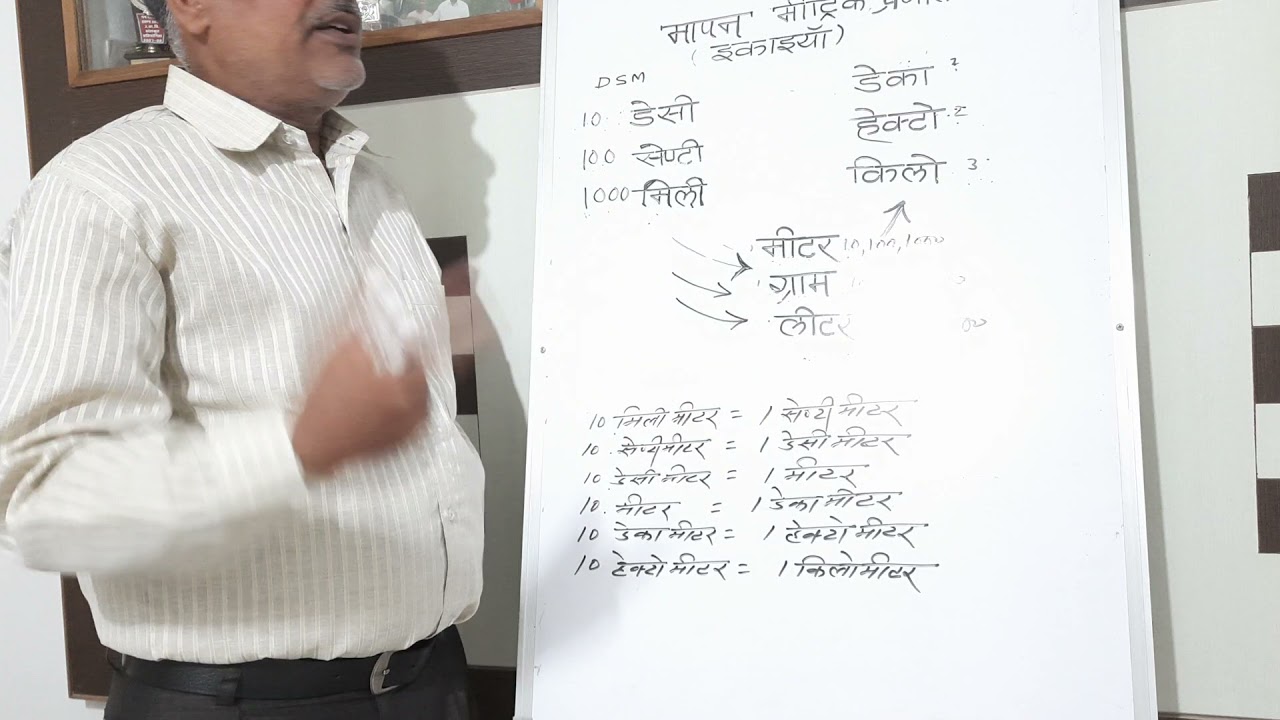 मापन मीट्रिक
(इकाइयाँ)
DSM
10 डेसी
100 सेण्टी
1000 मिली
डेका
हेक्टो
किलो 3
मीटर 10,100,1000
ग्राम
लीटर
10 मिली मीटर = 1 सेण्टी मीटर
10 सेण्टीमीटर = 1 डेसी मीटर
10 डेसी मीटर = 1 मीटर
10. मीटर = 1 डेका मीटर
10 डेका मीटर = 1 हेक्टो मीटर
10 हेक्टो मीटर = 1 किलोमीटर